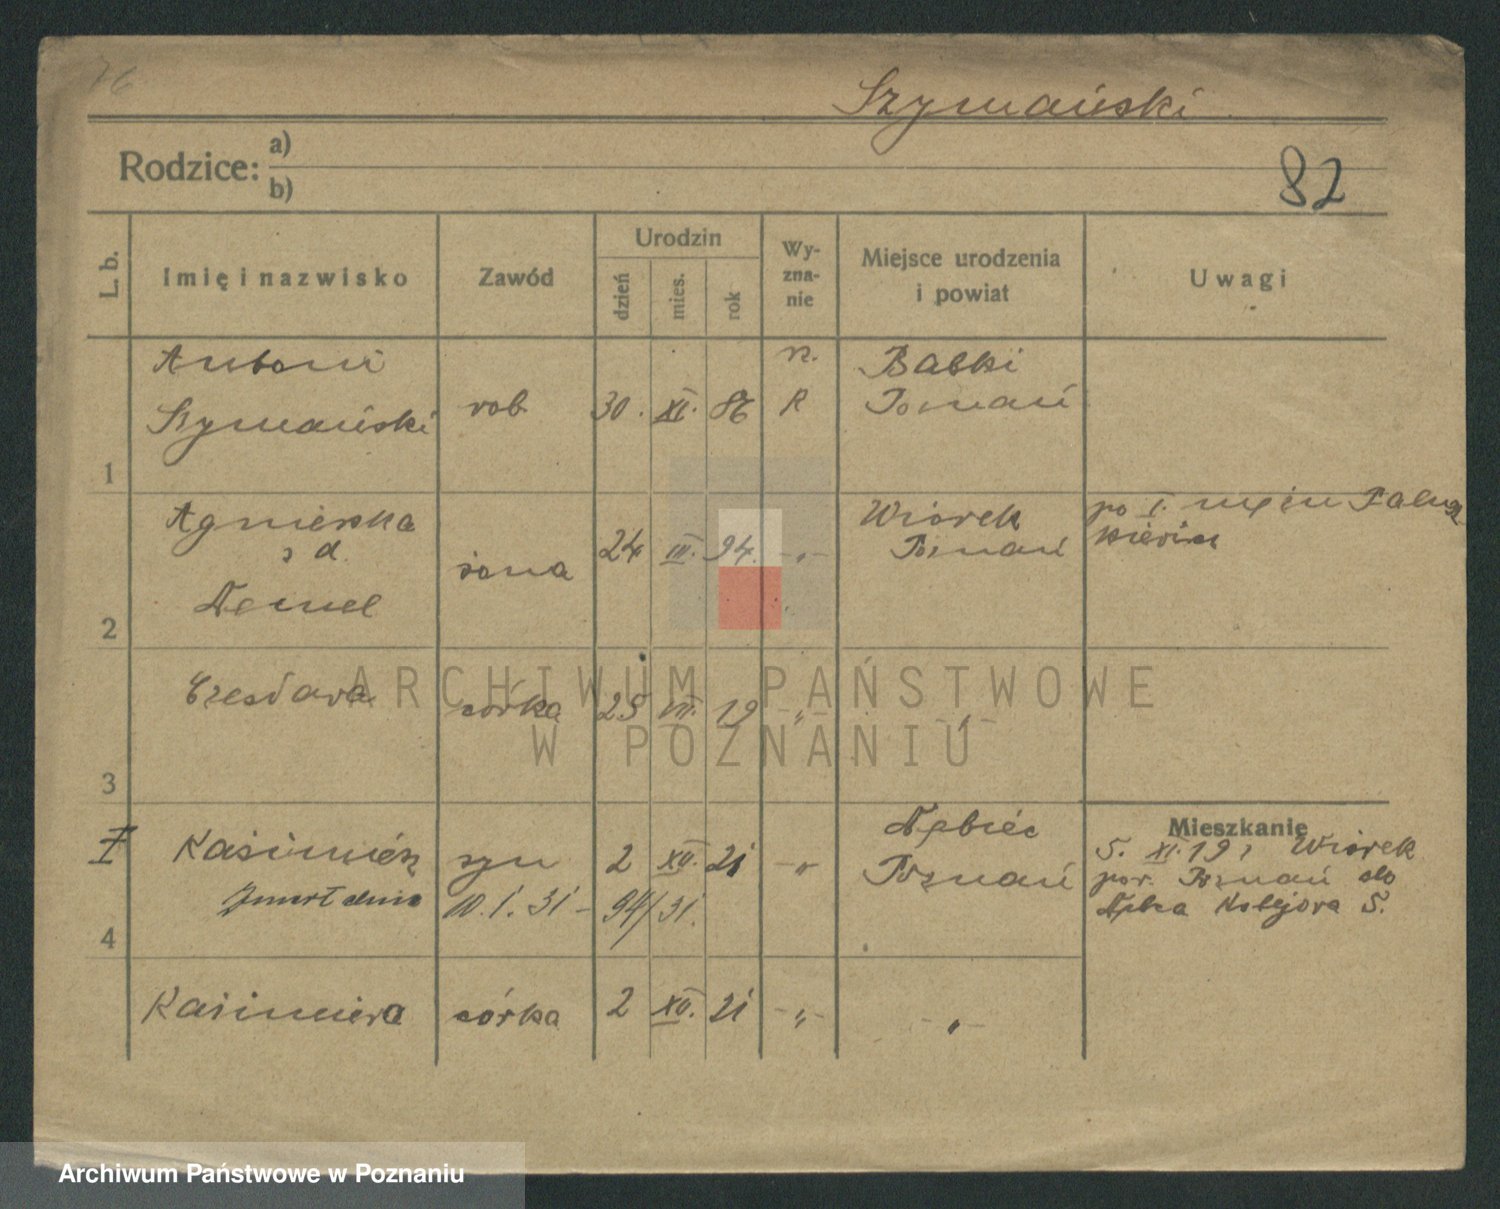 76
Szymański
Rodzice: a)
b)
82
L. b.
Imię i nazwisko
Zawód
Urodzin
dzień
mies.
rok
Wy-
zna-
nie
Miejsce urodzenia
i powiat
Uwagi
1
Antoni
Szymański
rob
30. XI. 86
R.
K
Babki
Poznań
2
Agnieszka
z d.
żona
24 III. 94. -„-
Wiórek
Poznań
po I. mężu
3
Czesława
córka
25 VII. 19 „
-„-
4
Kaźimiérz
syn
2 XII. 21 -„
Zmarł dnia 10. I. 31 - 94/31.
Dębiec
Poznań
Mieszkanie
5. XI. 19 z Wiórek
pow. Poznań do
Dębca 5.
Kaźimiera
córka
2 XII. 21 -„-
-„-
ARCHIWUM PAŃSTWOWE
W POZNANIU
Archiwum Państwowe w Poznaniu